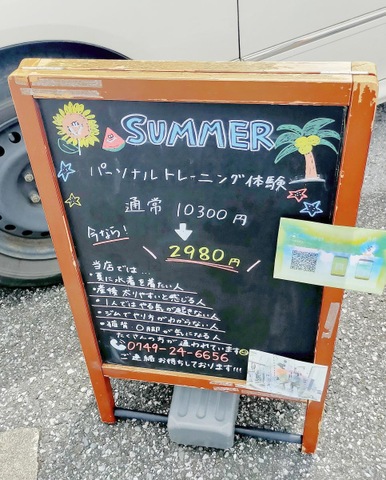 SUMMER
パーソナルトレーニング体験
通常 10300円
今なら!
2980円
当店では…
・夏に水着を着たい人
・産後太りやすいと感じる人
・1人ではやる気が起きない人
・ジムでやり方がわからない人
・脂質 0 が気になる人
たくさんの方が通われています
0749-24-6656
ご連絡お待ちしております!!!